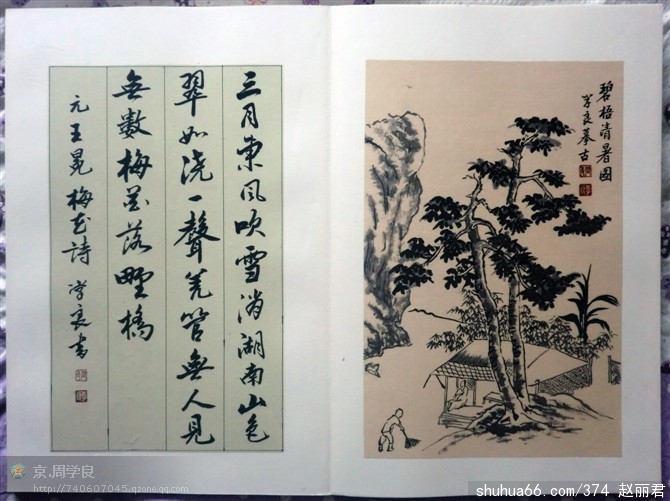 三月東風吹雪消湖南山色
翠如浇一聲羌管無人見
無數梅花落野橋
元王冕梅花詩 学良書
碧梧清暑图
学良摹古
京.周学良
http://740607045.qzone.qq.com
shuhua66.com/374 赵丽君